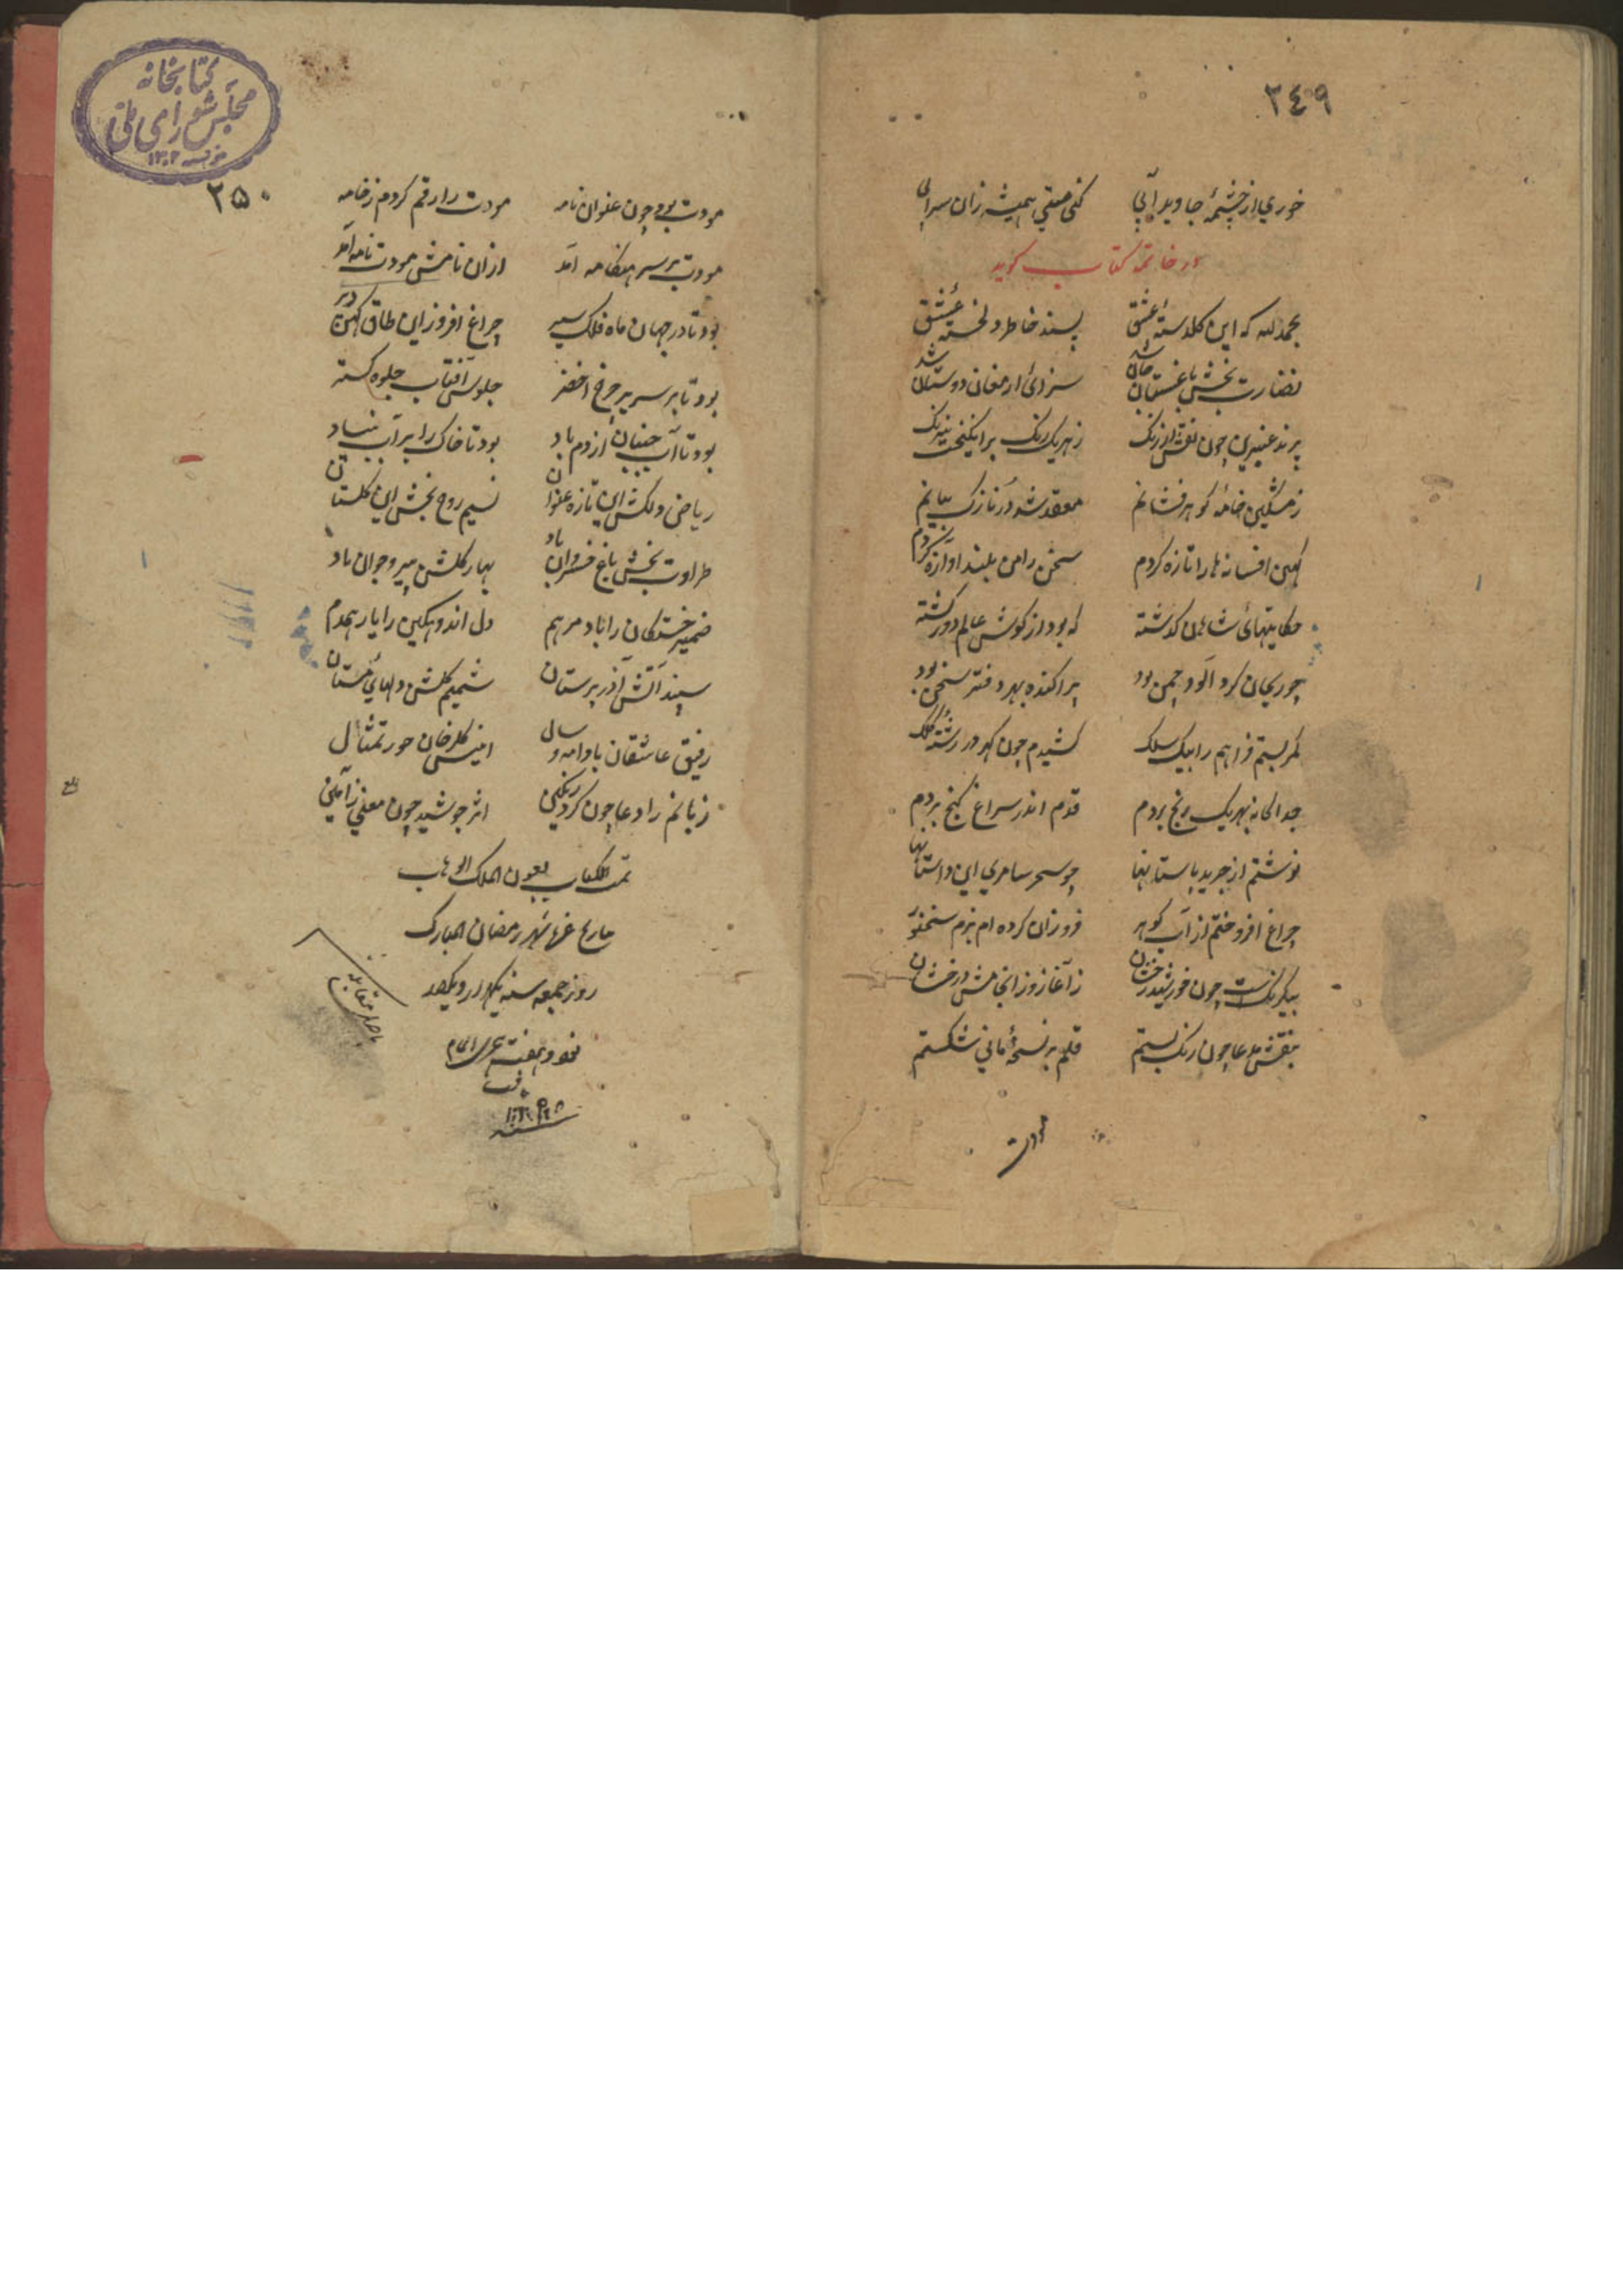 ٣٤٩
خوري از چشمهٔ جاويد آبي کني مستقي هميشه زان سيرابي
در خاتمه کتاب گويد
بحمدلله که اين گلدسته عشق پسند خاطر دلخسته عشق
نضارت بخش باغستان جان شد سزای ارمغان دوستان شد
پرند عنبرين چون نقش ارژنگ ز هر يک رنگ برانگيخت نيرنگ
ز مشکين خامهٔ گوهر فشانم معقد شد در نازک بيانم
کهن افسانه ها را تازه کردم سخن را من بلند آوازه کردم
حکايتهای شاهان گذشته که بود از گوش عالم دور گشته
چو ريحان گرد آلود چمن بود پراکنده بهر دفتر سخن بود
کمر بستم فراهم را بيک سلک کشيدم چون گهر در رشته کلک
جداگانه بهر يک رنج بردم قدم اندر سراغ گنج بردم
نوشتم از جريد باستانها چو سحر سامري اين داستانها
چراغ افروختم از آب گوهر فروزان کرده ام بزم سخنور
بيکرنگست چون خورشيد رخشان ز آغاز وز انجامش درخشان
بنقش مدعا چون رنگ بستم قلم بر نسخهٔ ماني شکستم
مودت
کتابخانه
مجلس شورای ملی
مؤسسه ۱۳۰۲
٢٥٠
مودت بود چون عنوان نامه مودت را رقم کردم ز خامه
مودت بر سر هنگامه آمد ازان نامش مودت نامه آمد
بود تا در جهان ماه فلک سير چراغ افروز اين طاق کهن دير
بود تا بر سرير چرخ اخضر جلوس آفتاب جلوه گستر
بود تا آب جنبان از دم باد بود تا خاک را بر آب بنياد
رياض دلکش اين تازه عنوان نسيم روح بخش اين گلستان
طراوت بخش باغ خسروان باد بهار گلشن پير و جوان باد
ضمير خستگان را باد مرهم دل اندوهگين را يار همدم
سپند آتش آذر پرستان شميم گلشن دلهای مستان
رفيق عاشقان باد امه و سال انيس گلرخان حور تمثال
زبانم را دعا چون کرد رنگين اثر جوشيد چون معني ز آمين
تمت الکتاب بعون الملک الوهاب
بتاريخ غره شهر رمضان المبارک
روز جمعه سنه يکهزار و يکصد
نود و هفت هجري اتمام
يافت
سنه
باصل مقابله